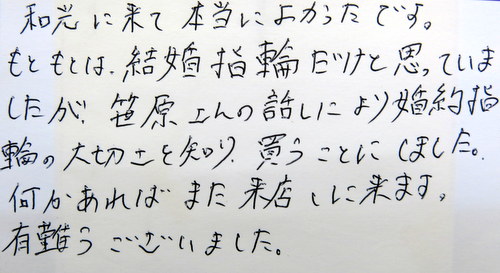 和光に来て本当によかったです。
もともとは、結婚指輪だけと思っていま
したが、笹原さんの話しにより婚約指
輪の大切さを知り、買うことにしました。
何かあればまた来店しに来ます。
有難うございました。